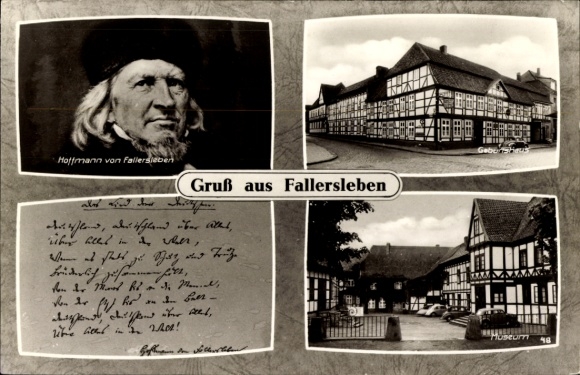 Hoffmann von Fallersleben
Geburtshaus
Gruß aus Fallersleben
Das Lied der Deutschen.
Deutschland, Deutschland über Alles,
Über Alles in der Welt,
Wenn es stets zu Schutz und Trutze
Brüderlich zusammenhält,
Von der Maas bis an die Memel,
Von der Etsch bis an den Belt –
Deutschland, Deutschland über Alles,
Über Alles in der Welt!
Hoffmann von Fallersleben
Museum
48